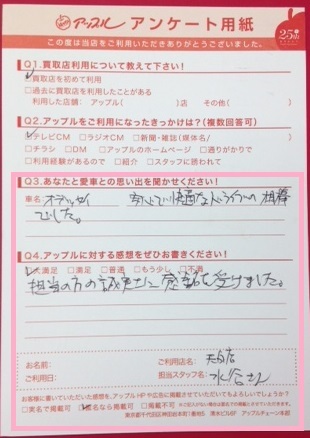 アップル アンケート用紙
25th
この度は当店をご利用いただきありがとうございました。
Q1.買取店利用について教えて下さい!
□買取店を初めて利用
□過去に買取店を利用したことがある
利用した店舗: アップル( )店 その他( )
Q2.アップルをご利用になったきっかけは?(複数回答可)
□テレビCM □ラジオCM □新聞・雑誌(媒体名/ )
□チラシ □DM □アップルのホームページ □通りがかりで
□利用経験があるので □紹介 □スタッフに誘われて
Q3.あなたと愛車との思い出を聞かせください!
車名 オデッセイ 快適なドライブの相棒
でした。
Q4.アップルに対する感想をぜひお書きください!
□大満足 □満足 □普通 □もう少し □不満
担当の方の誠実さに感銘を受けました。
お名前:
ご利用店名: 天白店
ご利用日:
担当スタッフ名: 水谷さん
お客様に書いていただいた感想を、アップルHPや広告に掲載させていただいてもよろしいでしょうか?
□実名で掲載可 □匿名なら掲載可 □掲載不可
東京都千代田区神田岩本町1番地5 清水ビル6F アップルチェーン本部